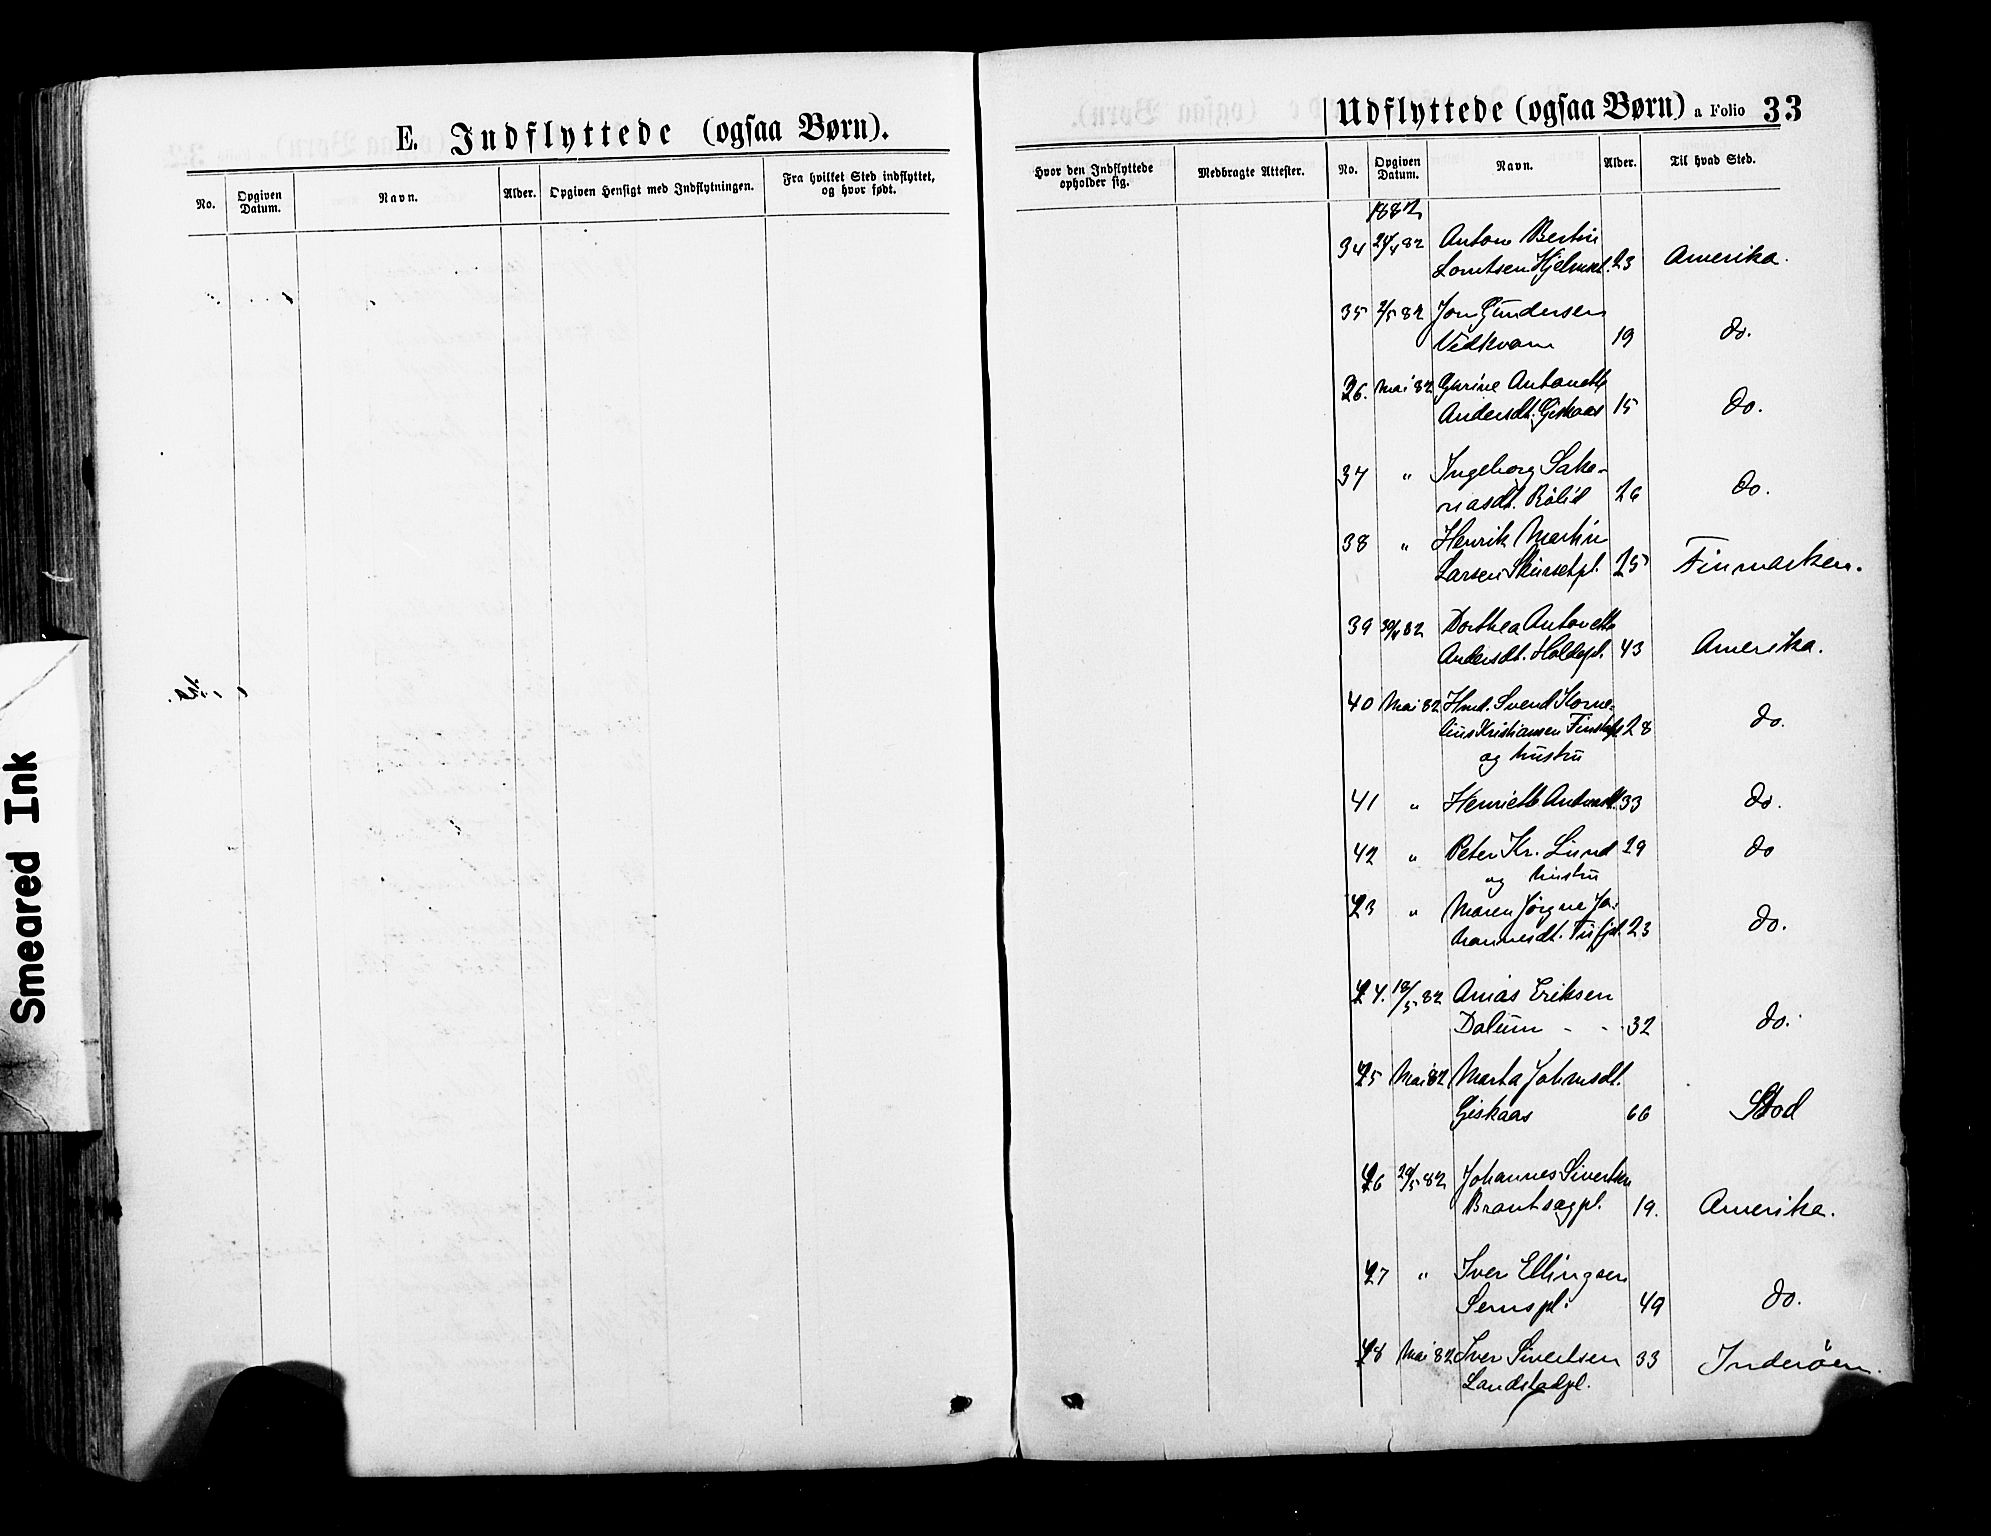 E. Indflyttede (ogsaa Børn).
No. Opgiven Datum. Navn. Alder. Opgiven Hensigt med Indflytningen. Fra hvilket Sted indflyttet, og hvor født.
Hvor den Indflyttede opholder sig. Medbragte Attester.
Udflyttede (ogsaa Børn) a Folio 33
No. Opgiven Datum. Navn. Alder. Til hvad Sted.
1882
34 24/4 82 Anton Bertin
Lorntsen 23 Amerika.
35 2/5 82 Jon Gundersen
Vedkvam 19 do.
36. Mai 82 Gurine Antonette
Andersdt. Giskaas 15 do.
37 " Ingeborg Saka-
riasdt. Rølid 26 do.
38 " Henrik Martin
Larsen 25 Finmarken.
39 30/4 82 Dorthea Antonette
Andersdt. 43 Amerika.
40 Mai 82 Hmd. Svend Korne-
lius Kristiansen 28 do.
og hustru
41 " Henriette 33 do.
42 " Peter Kr. Lund 29 do
og hustru
43 " Maren Jørgine Jo-
hannesdt. 23 do.
44. 18/5 82 Anias Eriksen
Dalum - - 32 do.
45 Mai 82 Marta Johnsdt.
Giskaas 66 Stod
46 29/5 82 Johannes Sivertsen
19. Amerika.
47 " Iver Ellingsen
Semspl. 49 do.
48 Mai 82 Iver Sivertsen 33 Inderøen.
Landstadpl.
Smeared Ink